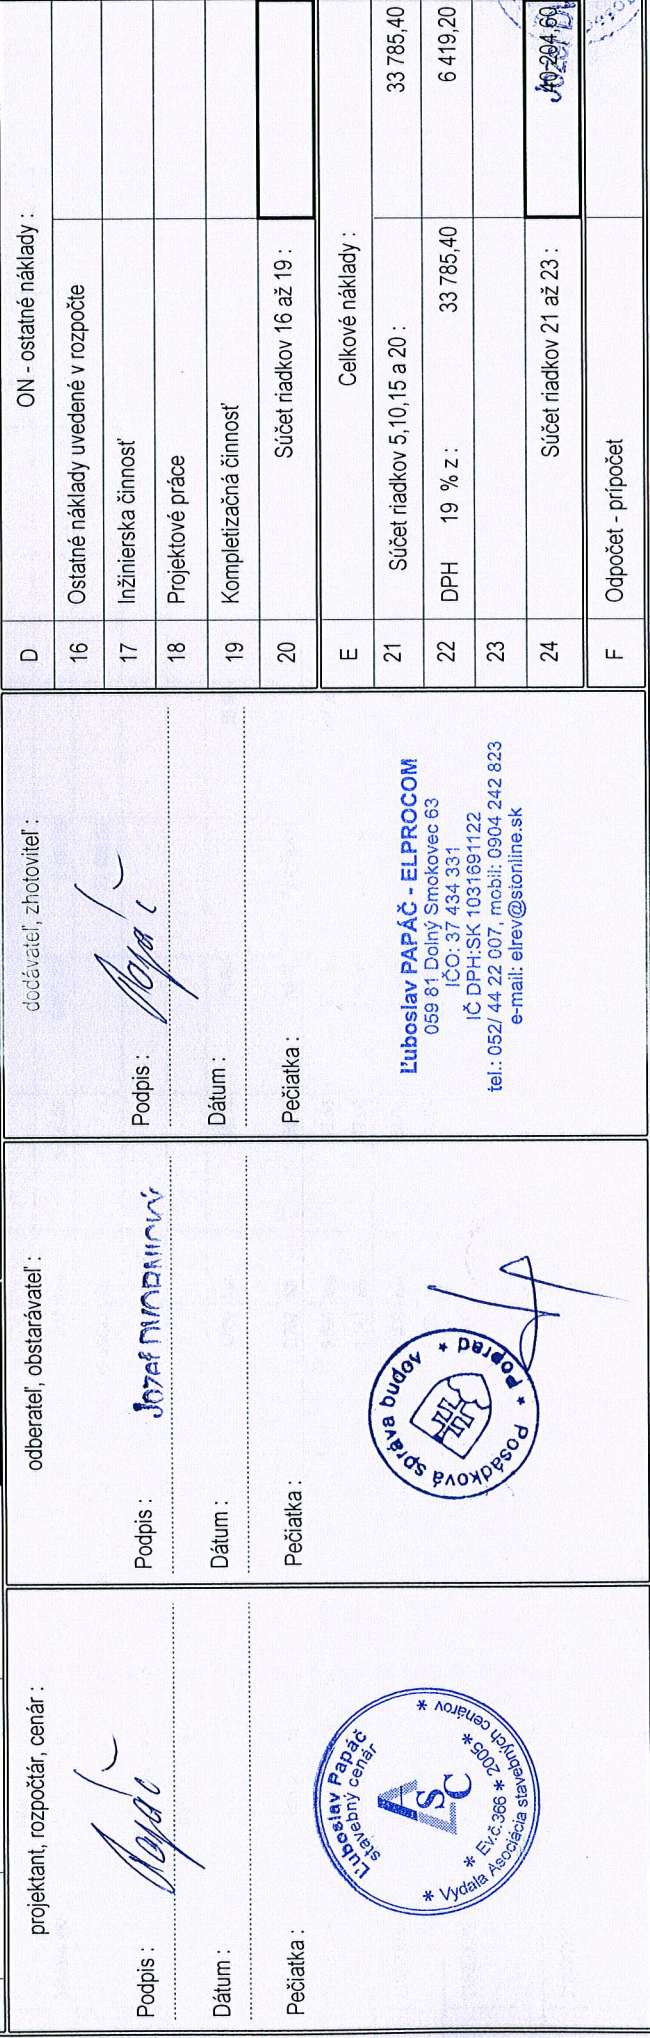 projektant, rozpočtár, cenár :
Podpis :
Papáč
Dátum :
Pečiatka :
Ľuboslav Papáč
stavebný cenár
ASC
* Ev.č.366 * 2005 *
* Vydala Asociácia stavebných cenárov *
odberateľ, obstarávateľ :
Podpis :
Jozef DVORNICKÝ
Dátum :
Pečiatka :
Posádková správa budov * Poprad *
dodávateľ, zhotoviteľ :
Podpis :
Papáč
Dátum :
Pečiatka :
Ľuboslav PAPÁČ - ELPROCOM
059 81 Dolný Smokovec 63
IČO: 37 434 331
IČ DPH:SK 1031691122
tel.: 052/ 44 22 007, mobil: 0904 242 823
e-mail: elrev@stonline.sk
D ON - ostatné náklady :
16 Ostatné náklady uvedené v rozpočte
17 Inžinierska činnosť
18 Projektové práce
19 Kompletizačná činnosť
20 Súčet riadkov 16 až 19 :
E Celkové náklady :
21 Súčet riadkov 5,10,15 a 20 : 33 785,40
22 DPH 19 % z : 33 785,40 6 419,20
23
24 Súčet riadkov 21 až 23 : 40 204,60
Jozef
F Odpočet - prípočet